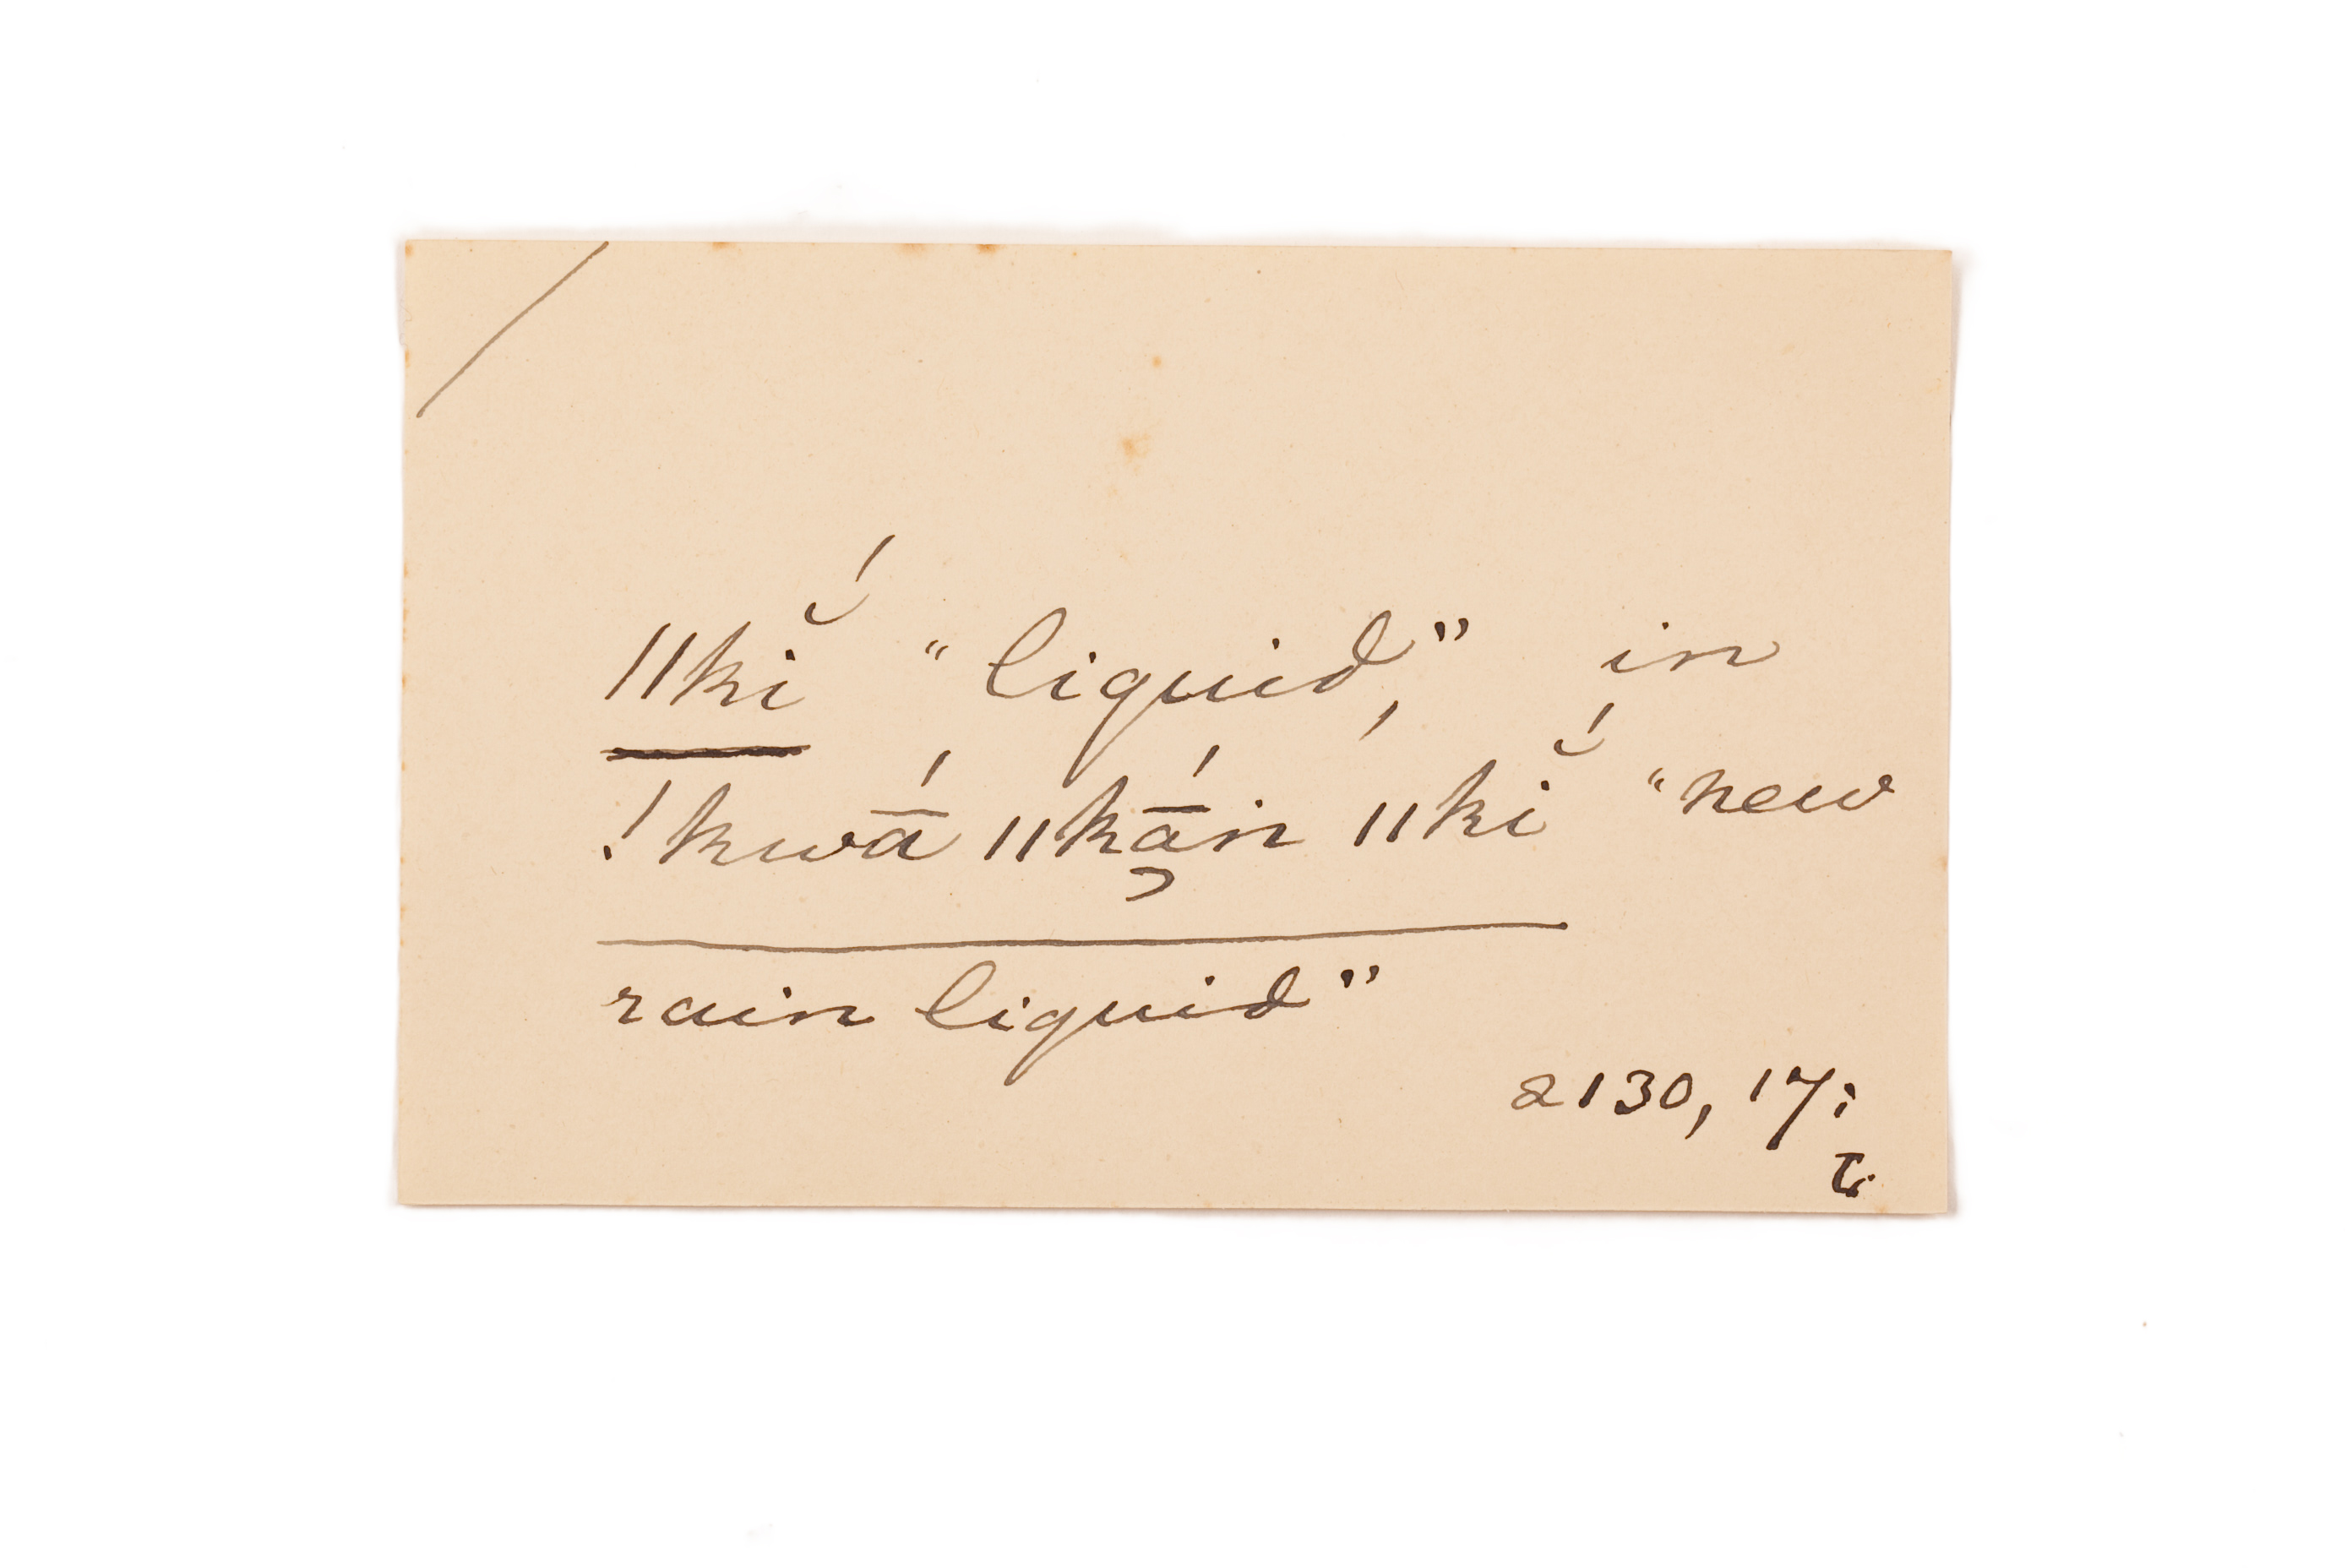 ǁkĭ́ "liquid," in
!kwā́ ǁkā̹́n ǁkĭ́ "new
rain liquid"
2130, 17;